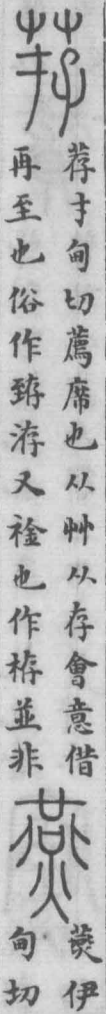 荐
荐才甸切薦席也从艸从存會意借
再至也俗作臶洊又䘲也作栫並非
燕
䴏伊
甸切